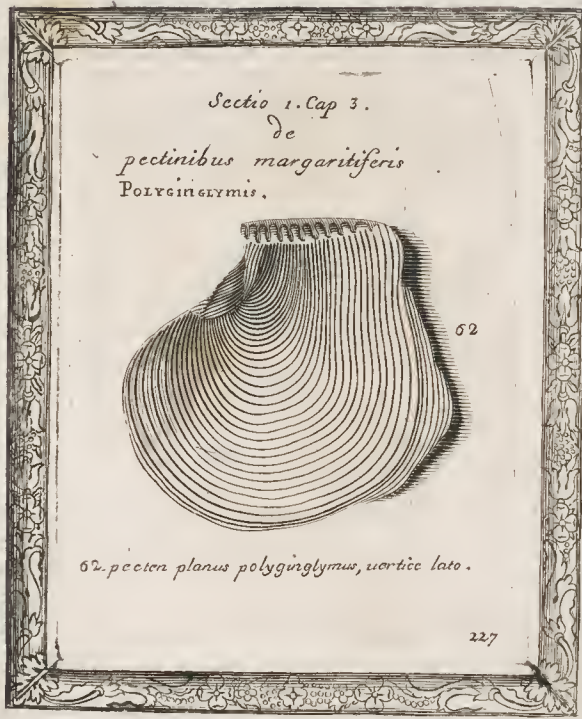 Sectio 1. Cap 3.
de
pectinibus margaritiferis
POLYGINGLYMIS.
62
62. pecten planus polyginglymus, uertice lato.
227